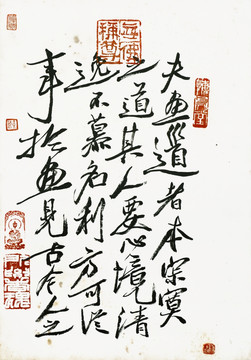 夫画道者本寂寞
之道其人要心境清
逸不慕名利方可從
事於画見古今人之